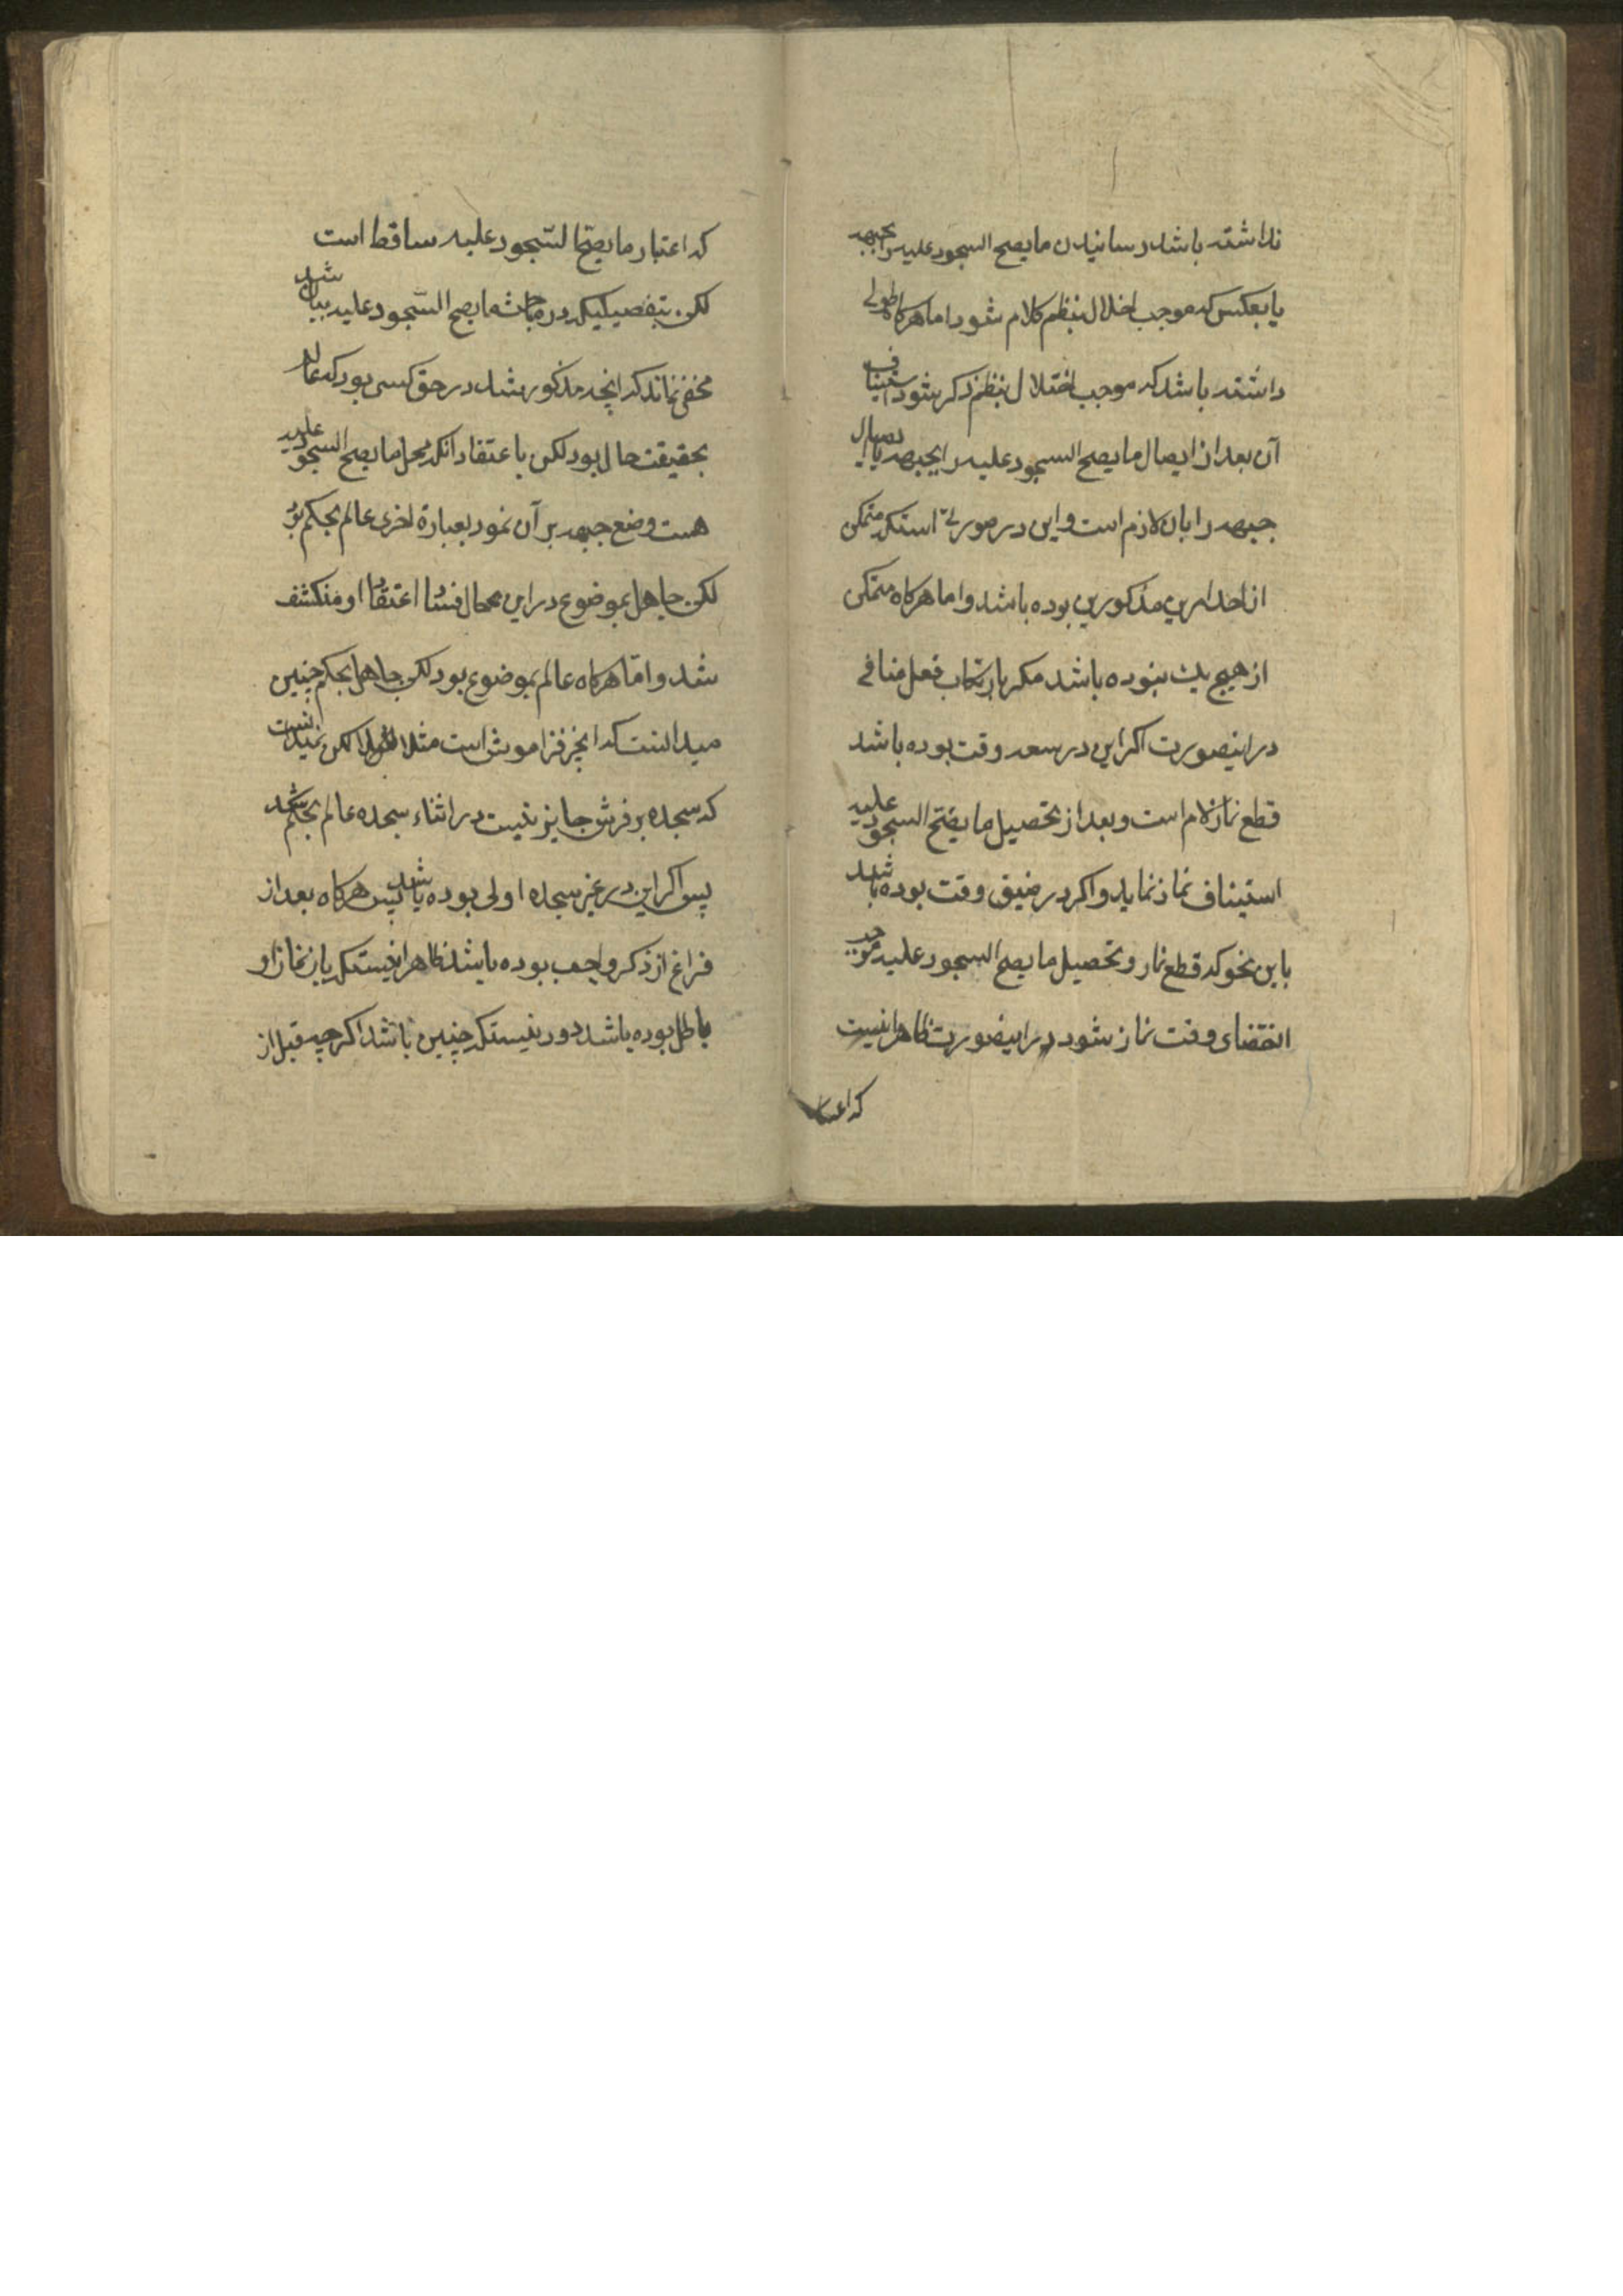 نداشته باشد رسانیدن ما یصح السجود علیه را بجبهه
یا بعکس که موجب اخلال بنظم کلام شود اما هرکاه طولی
داشته باشد که موجب اختلال بنظم ذکر شود استیناف
آن بعد از ایصال ما یصح السجود علیه را بجبهه یا ایصال
جبهه را بان لازم است و این در صورتی استکه متمکن
از احد امرین مذکورین بوده باشد و اما هرکاه متمکن
از هیچ یک نبوده باشد مکر بارتکاب فعل منافی
در اینصورت اکر این در سعه وقت بوده باشد
قطع نماز لازم است و بعد از تحصیل ما یصح السجود علیه
استیناف نماز نماید و اکر در ضیق وقت بوده باشد
باین نحو که قطع نماز و تحصیل ما یصح السجود علیه موجب
انقضای وقت نماز شود در اینصورت ظاهر اینست
که اعتبار
که اعتبار ما یصح السجود علیه ساقط است
لکن بتفصیلیکه در مباحث ما یصح السجود علیه بیان شد
مخفی نماند که انچه مذکور شد در حق کسی بود که عالم
بحقیقت حال بود لکن باعتقاد انکه محل ما یصح السجود علیه
هست وضع جبهه بر آن نمود بعبارة اخری عالم بحکم بود
لکن جاهل بموضوع در این محال فساد اعتقاد او منکشف
شد و اما هرکاه عالم بموضوع بود لکن جاهل بحکم چنین
میدانست که این فراموش است مثلا لکن نمیدانست
که سجده بر فرش جایز نیست در اثناء سجده عالم بحکم شد
پس اکر این در غیر سجده اولی بوده باشد پس هرکاه بعد از
فراغ از ذکر واجب بوده باشد ظاهر اینستکه باز نماز او
باطل بوده باشد دور نیستکه چنین باشد اکرچه قبل از